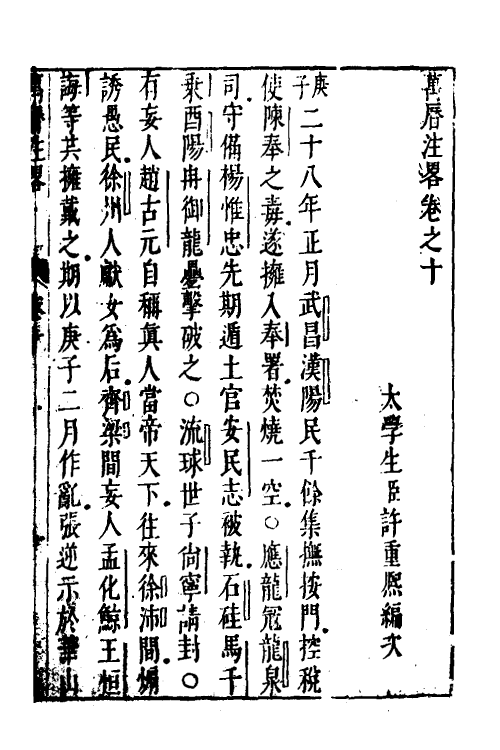 萬曆注畧卷之十
太學生臣許重熈編次
庚子二十八年正月武昌漢陽民千餘集撫按門控稅
使陳奉之毒遂擁入奉署焚燒一空○應龍冦龍泉
司守備楊惟忠先期遁土官安民志被執石硅馬千
乗酉陽冉御龍疊擊破之○流球世子尙寧請封○
有妄人趙古元自稱眞人當帝天下往來徐沛間煽
誘愚民徐州人獻女爲后齊梁間妄人孟化鯨王恒
誨等共擁戴之期以庚子二月作亂張逆示於華山